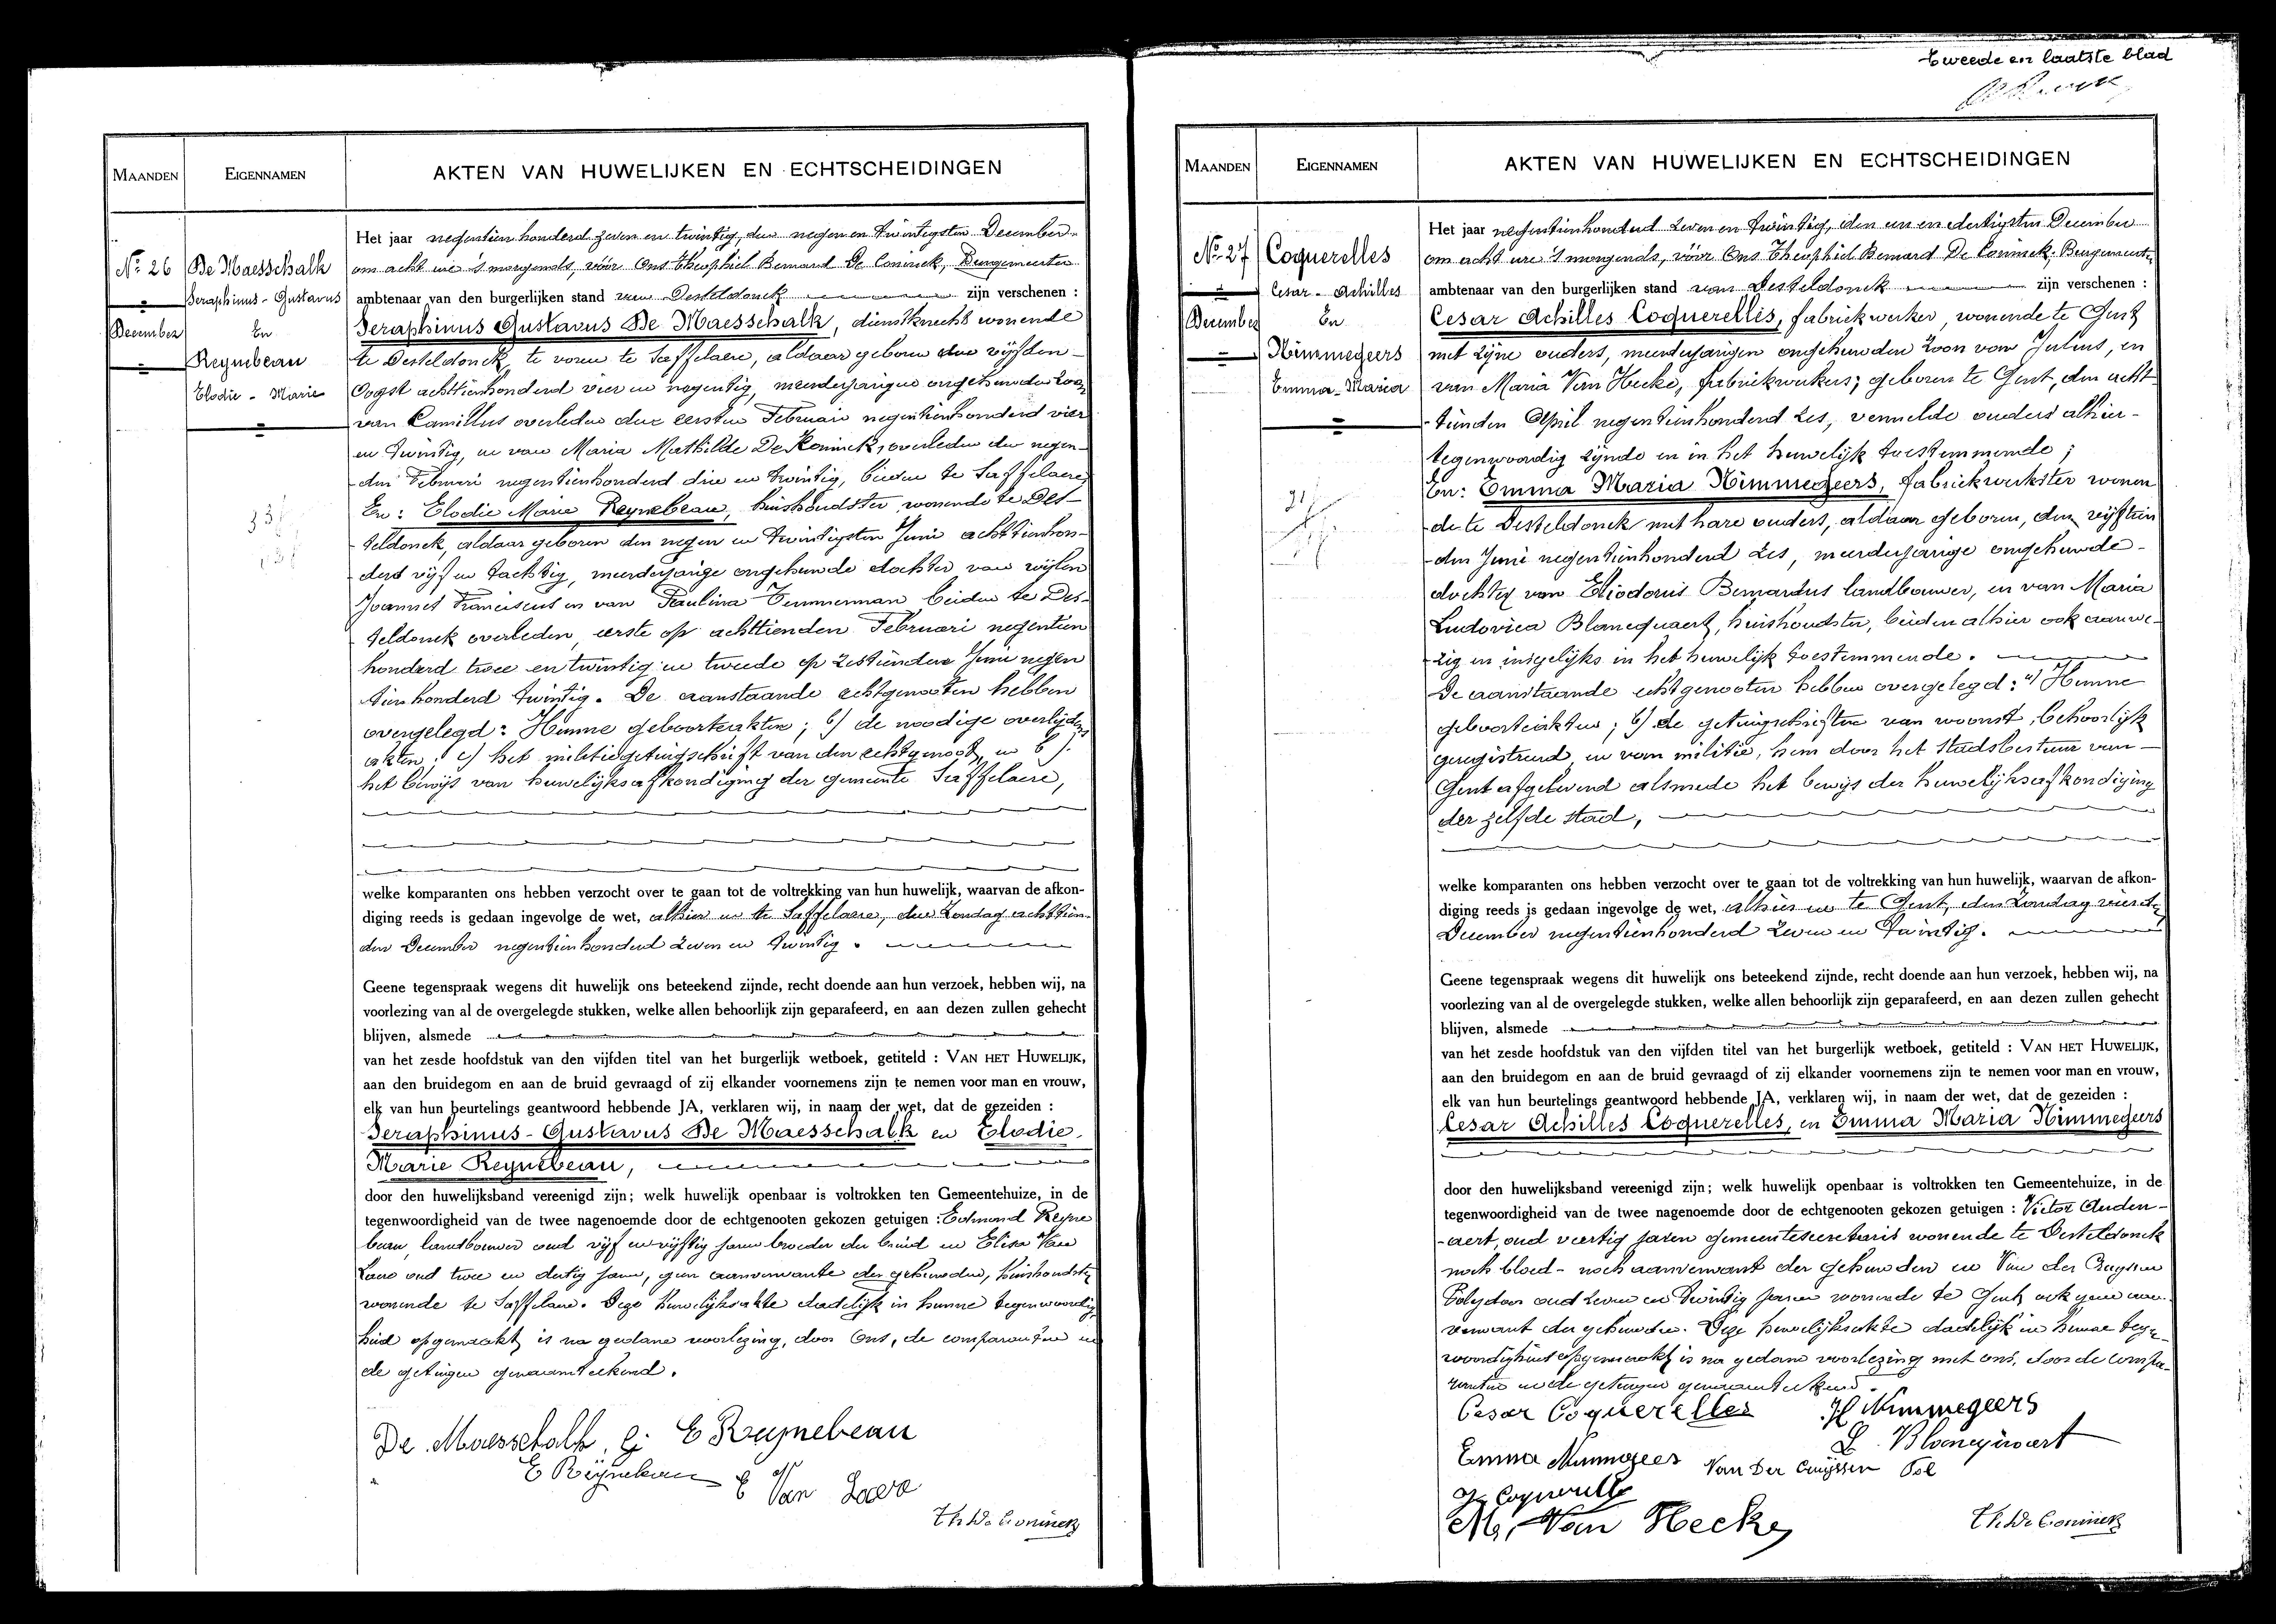 MAANDEN
EIGENNAMEN
AKTEN VAN HUWELIJKEN EN ECHTSCHEIDINGEN
No 26
De Maesschalk
Seraphinus - Gustavus
December
En
Reynebeau
Elodie - Marie
Het jaar negentien honderd zeven en twintig, den negen en twintigsten December
om acht ure 's morgends, vóór Ons Theophiel Bernard De Coninck, Burgemeester
ambtenaar van den burgerlijken stand van Desteldonck zijn verschenen :
Seraphinus Gustavus De Maesschalk, dienstknecht wonende
te Desteldonck, te voren te Saffelaere, aldaar geboren den vijfden
Oogst achttienhonderd vier en negentig, meerderjarigen ongehuwden zoon
van Camillus overleden den eersten Februari negentienhonderd vier
en twintig, en van Maria Mathilde De Konninck, overleden den negen-
den Februari negentienhonderd drie en twintig, beiden te Saffelaere,
En : Elodie Marie Reynebeau, huishoudster wonende te Des-
teldonck, aldaar geboren den negen en twintigsten Juni achttienhon-
derd vijf en tachtig, meerderjarige ongehuwde dochter van wijlen
Joannes Franciscus en van Paulina Temmerman beiden te Des-
teldonck overleden, eerste op achttienden Februari negentien
honderd twee en twintig en tweede op zestienden Juni negen
tien honderd twintig. De aanstaande echtgenooten hebben
overgelegd : Hunne geboorteakten ; b) de noodige overlijdens
akten ; c) het militiegetuigschrift van den echtgenoot, en
het bewijs van huwelijksafkondiging der gemeente Saffelaere,
welke komparanten ons hebben verzocht over te gaan tot de voltrekking van hun huwelijk, waarvan de afkon-
diging reeds is gedaan ingevolge de wet, alhier en te Saffelaere, den Zondag achttien-
den December negentienhonderd zeven en twintig.
Geene tegenspraak wegens dit huwelijk ons beteekend zijnde, recht doende aan hun verzoek, hebben wij, na
voorlezing van al de overgelegde stukken, welke allen behoorlijk zijn geparafeerd, en aan dezen zullen gehecht
blijven, alsmede
van het zesde hoofdstuk van den vijfden titel van het burgerlijk wetboek, getiteld : VAN HET HUWELIJK,
aan den bruidegom en aan de bruid gevraagd of zij elkander voornemens zijn te nemen voor man en vrouw,
elk van hun beurtelings geantwoord hebbende JA, verklaren wij, in naam der wet, dat de gezeiden :
Seraphinus - Gustavus De Maesschalk en Elodie
Marie Reynebeau,
door den huwelijksband vereenigd zijn; welk huwelijk openbaar is voltrokken ten Gemeentehuize, in de
tegenwoordigheid van de twee nagenoemde door de echtgenooten gekozen getuigen : Edmond Reyne
beau, landbouwer oud vijf en vijftig jaren broeder der bruid en Elisa Van
Laere oud twee en dertig jaren, geen aanverwante der gehuwden, huishoudster
wonende te Saffelaere. Deze huwelijksakte dadelijk in hunne tegenwoordig
heid opgemaakt is na gedane voorlezing, door Ons, de comparanten en
de getuigen genaamteekend.
De Maesschalk. G. E Reynebeau
E Reynebeau E Van Laere
Th. De Coninck
Tweede en laatste blad
MAANDEN
EIGENNAMEN
AKTEN VAN HUWELIJKEN EN ECHTSCHEIDINGEN
No 27
Coquerelles
Cesar - Achilles
December
En
Nimmegeers
Emma - Maria
Het jaar negentienhonderd zeven en twintig, den een en dertigsten December
om acht ure 's morgends, vóór Ons Theophiel Bernard De Coninck Burgemeester
ambtenaar van den burgerlijken stand van Desteldonck zijn verschenen :
Cesar Achilles Coquerelles, fabriekwerker, wonende te Gent
met zijne ouders, meerderjarigen ongehuwden zoon van Julius, en
van Maria Van Hecke, fabriekwerkers; geboren te Gent, den acht
tienden April negentienhonderd zes, vermelde ouders alhier
tegenwoordig zijnde en in het huwelijk toestemmende ;
En : Emma Maria Nimmegeers, fabriekwerkster wonen
de te Desteldonck met hare ouders, aldaar geboren, den vijftien
den Juni negentienhonderd zes, meerderjarige ongehuwde
dochter van Eliodorus Bernardus landbouwer, en van Maria
Ludovica Blancquaert, huishoudster, beiden alhier ook aanwe-
zig en insgelijks in het huwelijk toestemmende.
De aanstaande echtgenooten hebben overgelegd : a) Hunne
geboorteakten ; b) de getuigschriften van woonst, behoorlijk
geregistreerd en van militie, hem door het Stadsbestuur van
Gent afgeleverd alsmede het bewijs der huwelijksafkondiging
der zelfde stad,
welke komparanten ons hebben verzocht over te gaan tot de voltrekking van hun huwelijk, waarvan de afkon-
diging reeds is gedaan ingevolge de wet, alhier en te Gent, den Zondag vierden
December negentienhonderd zeven en twintig.
Geene tegenspraak wegens dit huwelijk ons beteekend zijnde, recht doende aan hun verzoek, hebben wij, na
voorlezing van al de overgelegde stukken, welke allen behoorlijk zijn geparafeerd, en aan dezen zullen gehecht
blijven, alsmede
van het zesde hoofdstuk van den vijfden titel van het burgerlijk wetboek, getiteld : VAN HET HUWELIJK,
aan den bruidegom en aan de bruid gevraagd of zij elkander voornemens zijn te nemen voor man en vrouw,
elk van hun beurtelings geantwoord hebbende JA, verklaren wij, in naam der wet, dat de gezeiden :
Cesar Achilles Coquerelles, en Emma Maria Nimmegeers
door den huwelijksband vereenigd zijn; welk huwelijk openbaar is voltrokken ten Gemeentehuize, in de
tegenwoordigheid van de twee nagenoemde door de echtgenooten gekozen getuigen : Victor Auden-
aert, oud veertig jaren gemeentesecretaris wonende te Desteldonck
noch bloed- noch aanverwant der gehuwden en Van der Cruyssen
Polydoor oud zeven en twintig jaren wonende te Gent, ook geen aan-
verwant der gehuwden. Deze huwelijksakte dadelijk in hunne tegen-
woordigheid opgemaakt is na gedane voorlezing met ons, door de compa-
ranten en de getuigen genaamteekend.
Cesar Coquerelles H Nimmegeers
Emma Nimmegeers L. Blancquaert
Van Der Cruÿssen Pol
M. Van Hecke
Th. De Coninck